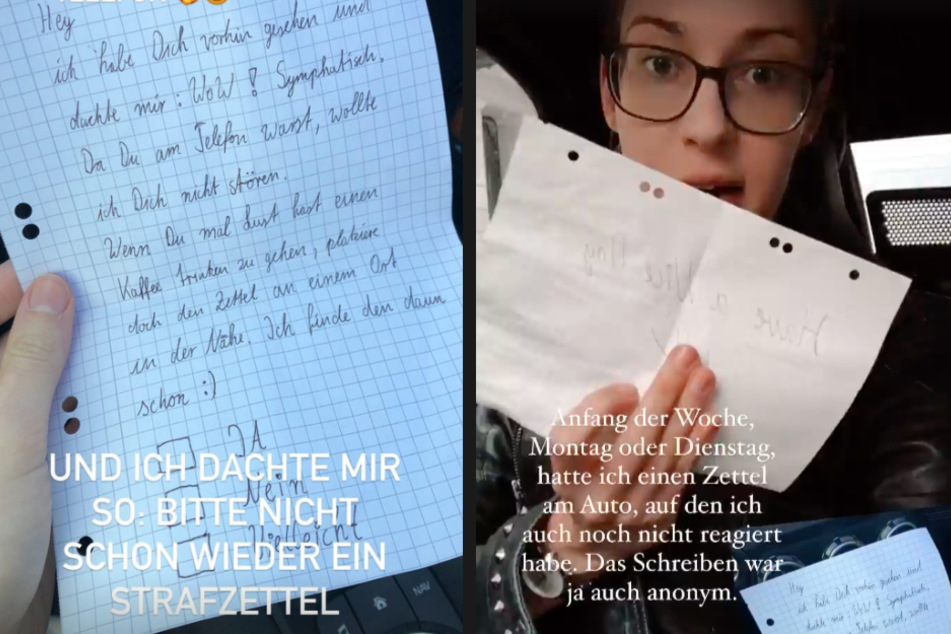 Hey
ich habe Dich vorhin gesehen und
dachte mir: WoW! Symphatisch.
Da Du am Telefon warst, wollte
ich Dich nicht stören.
Wenn Du mal Lust hast einen
Kaffee trinken zu gehen, platziere
doch den Zettel an einem Ort
in der Nähe. Ich finde den dann
schon :)
JA
Nein
Vielleicht
UND ICH DACHTE MIR
SO: BITTE NICHT
SCHON WIEDER EIN
STRAFZETTEL
NAV
Have a Nice Day
Anfang der Woche,
Montag oder Dienstag,
hatte ich einen Zettel
am Auto, auf den ich
auch noch nicht reagiert
habe. Das Schreiben war
ja auch anonym.
Hey
ich habe Dich vorhin gesehen und
dachte mir: WoW! Symphatisch.
Telefon warst, wollte